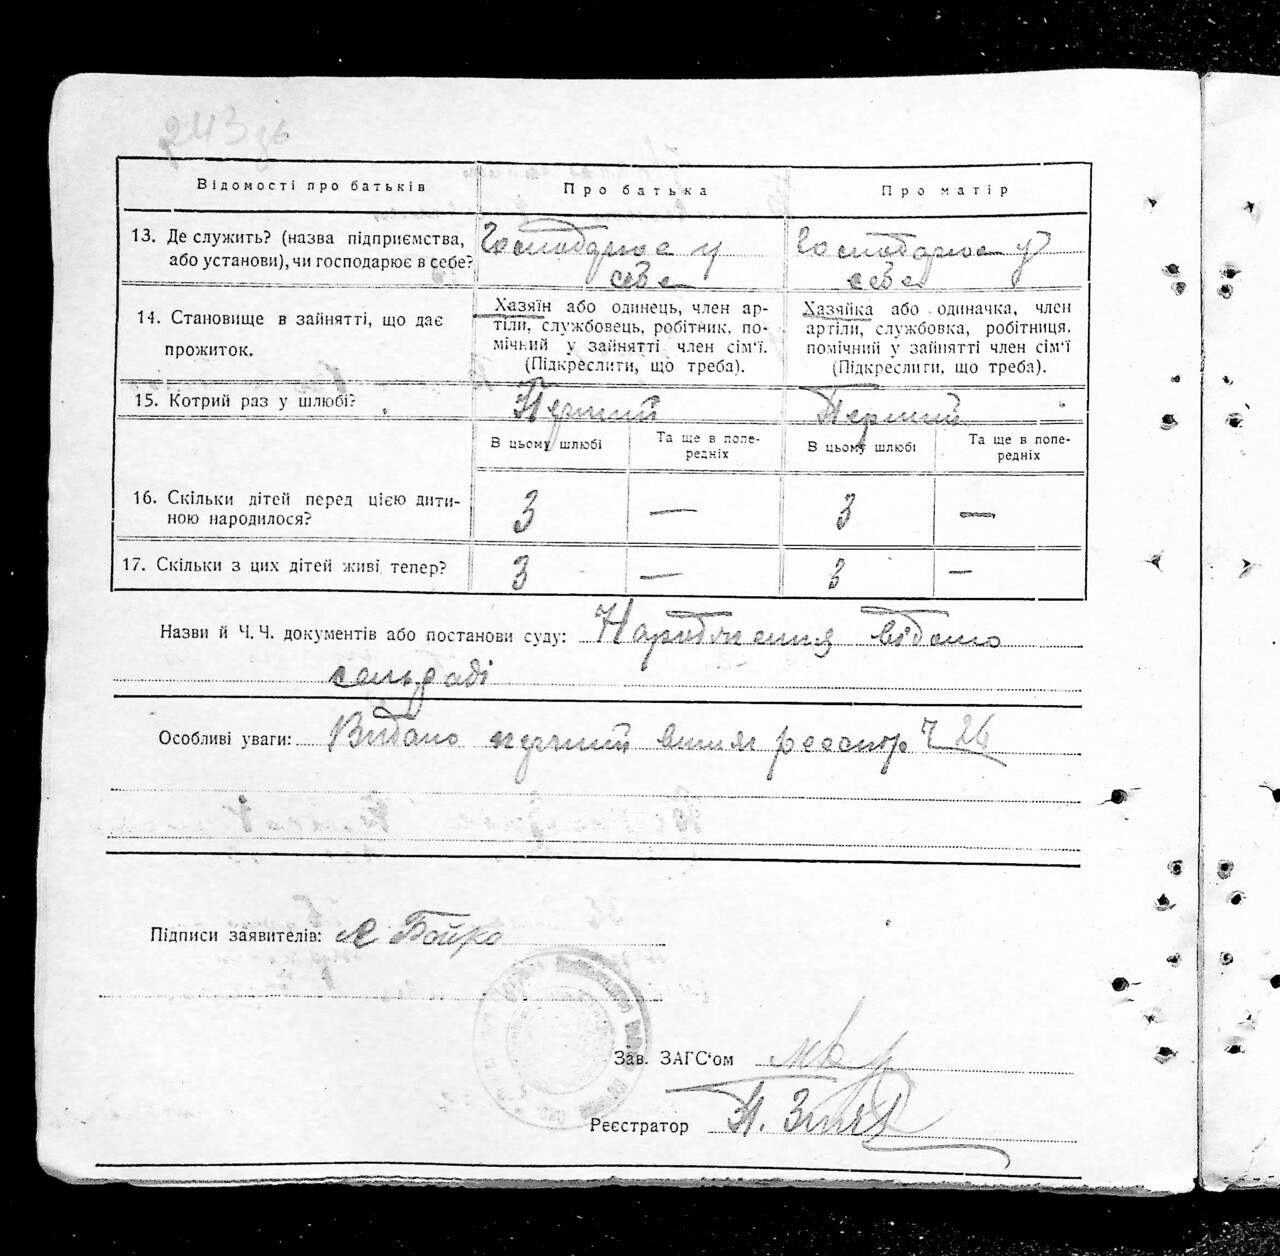 243 зв
Відомості про батьків
Про батька
Про матір
13. Де служить? (назва підприємства,
або установи), чи господарює в себе?
Господарює у
себе
Господарює у
себе
14. Становище в зайнятті, що дає
прожиток.
Хазяїн або одинець, член ар-
тіли, службовець, робітник, по-
мічний у зайнятті член сім'ї.
(Підкреслити, що треба).
Хазяйка або одиначка, член
артіли, службовка, робітниця,
помічний у зайнятті член сім'ї
(Підкреслити, що треба).
15. Котрий раз у шлюбі?
Перший
Перший
В цьому шлюбі
Та ще в попе-
редніх
В цьому шлюбі
Та ще в попе-
редніх
16. Скільки дітей перед цією дити-
ною народилося?
3
—
3
—
17. Скільки з цих дітей живі тепер?
3
—
3
—
Назви й Ч.Ч. документів або постанови суду: Народження відомо
сельраді
Особливі уваги: Видано перший Ч 26
Підписи заявителів: Бойко
Зав. ЗАГС'ом
Реєстратор